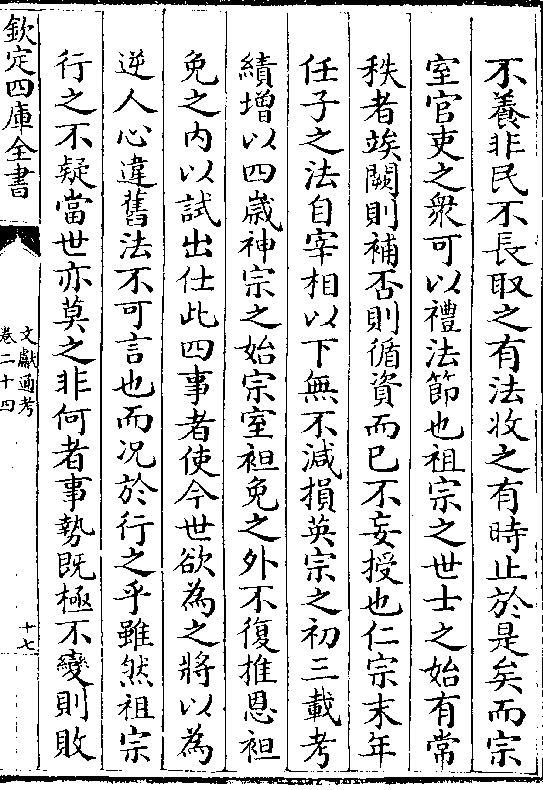 不養非民不長取之有法收之有時止於是矣而宗
室官吏之衆可以禮法節也祖宗之世士之始有常
秩者竢闕則補否則循資而已不妄授也仁宗末年
任子之法自宰相以下無不減損英宗之初三載考
績增以四歲神宗之始宗室袒免之外不復推恩袒
免之内以試出仕此四事者使今世欲為之將以為
逆人心違舊法不可言也而况於行之乎雖然祖宗
行之不疑當世亦莫之非何者事勢既極不變則敗
欽定四庫全書
文獻通考
卷二十四
十七